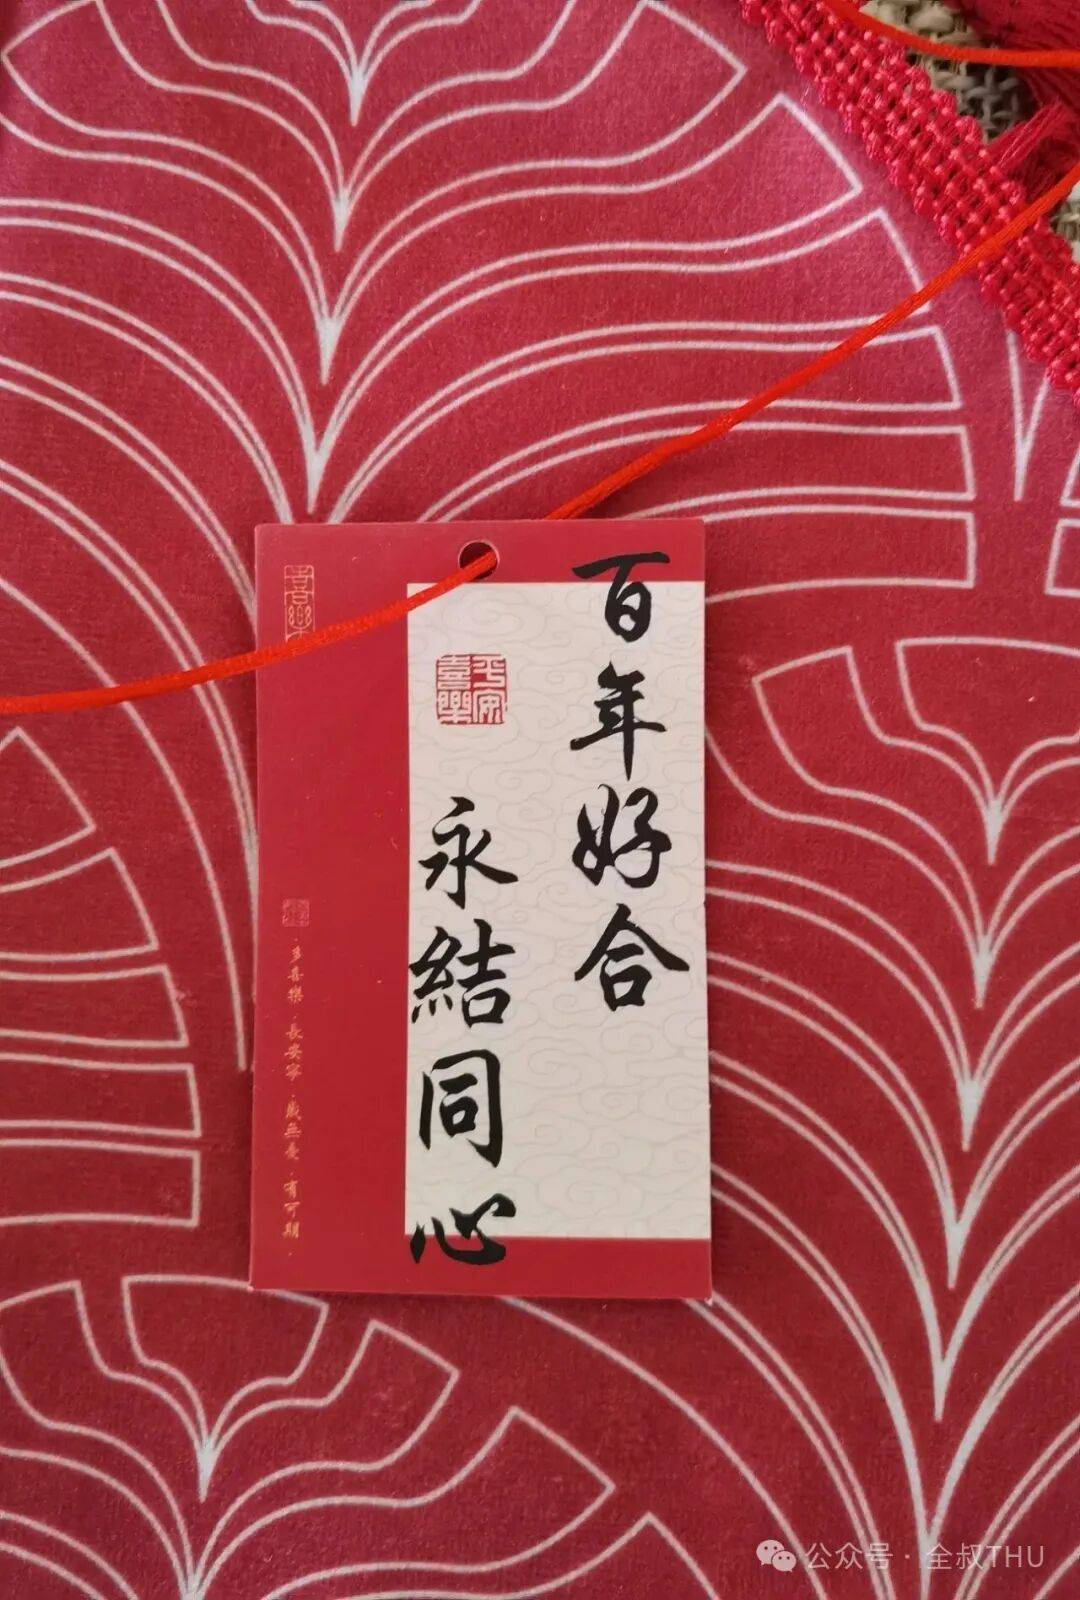 百年好合
永結同心
平安
喜樂
喜樂
·多喜樂·長安寧·歲無憂·有可期·
公众号·全叔THU